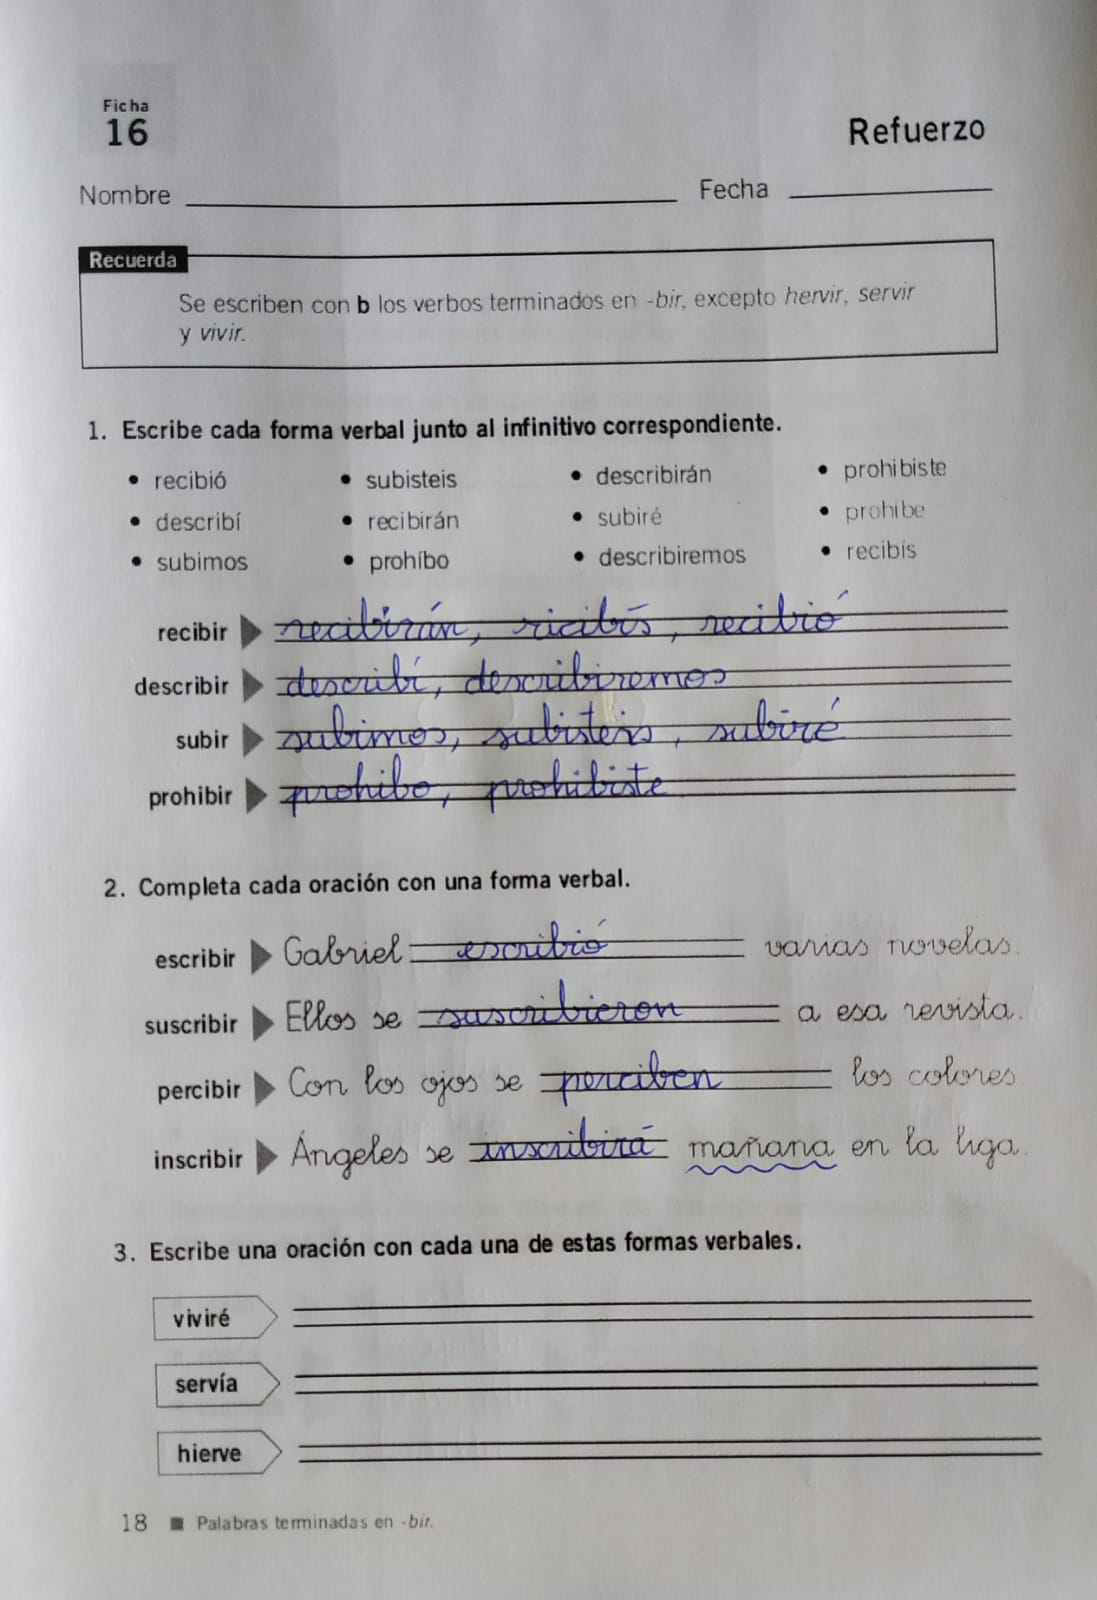 Ficha
16
Refuerzo
Nombre Fecha
Recuerda
Se escriben con b los verbos terminados en -bir, excepto hervir, servir
y vivir.
1. Escribe cada forma verbal junto al infinitivo correspondiente.
• recibió • subisteis • describirán • prohibiste
• describí • recibirán • subiré • prohíbe
• subimos • prohíbo • describiremos • recibís
recibir recibirán, ricibís, recibió
describir describí, describiremos
subir subimos, subisteis, subiré
prohibir prohibo, prohibiste
2. Completa cada oración con una forma verbal.
escribir Gabriel escribió varias novelas.
suscribir Ellos se suscribieron a esa revista.
percibir Con los ojos se perciben los colores
inscribir Ángeles se inscribirá mañana en la liga.
3. Escribe una oración con cada una de estas formas verbales.
viviré
servía
hierve
18 ■ Palabras terminadas en -bir.